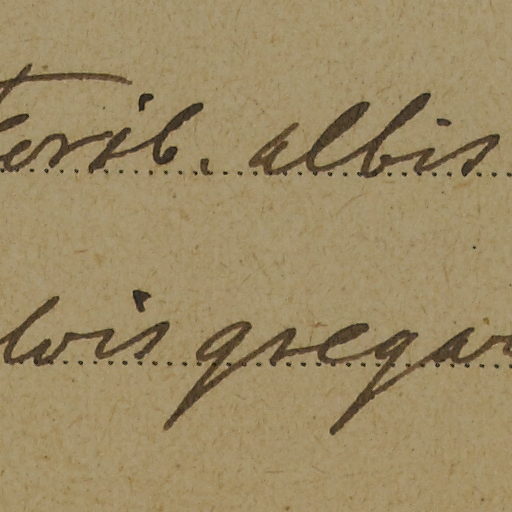 lorib. albis
lvis gregar